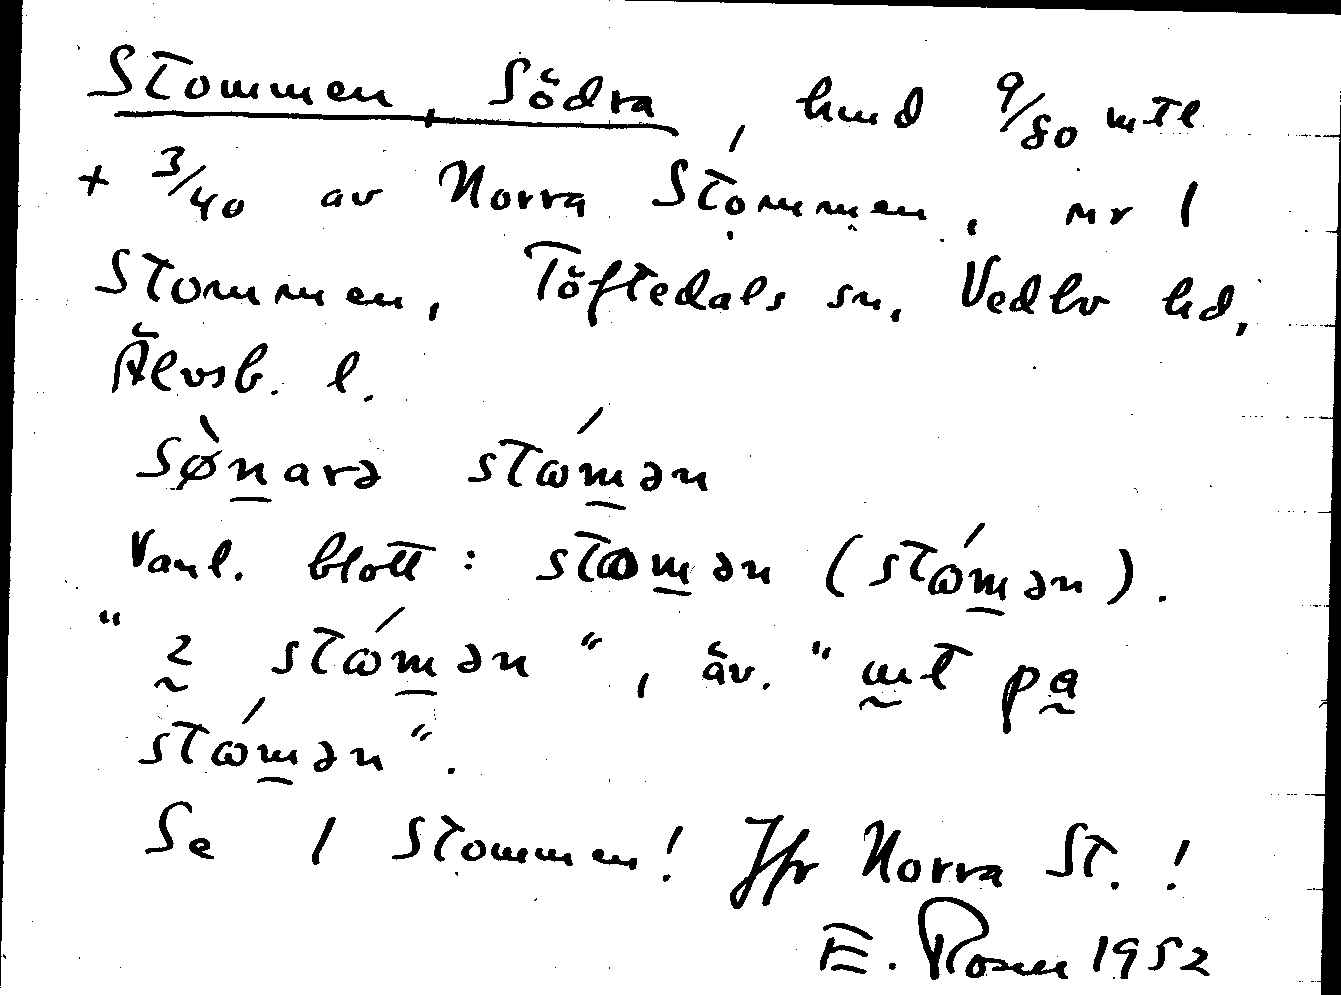 Stommen, Södra, hmd 9/80 mtl
+ 3/40 av Norra Stommen, nr 1
Stommen, Töftedals sn, Vedbo hd,
Älvsb. l.
sø̀n̲arə stɷ́m̲ən
Vanl. blott: stɷm̲ən (stɷ́m̲ən).
"2̰ stɷ́m̲ən", äv. "ut pa̰
stɷ́m̲ən".
Se 1 Stommen! Jfr Norra St.!
E. Rosen 1952